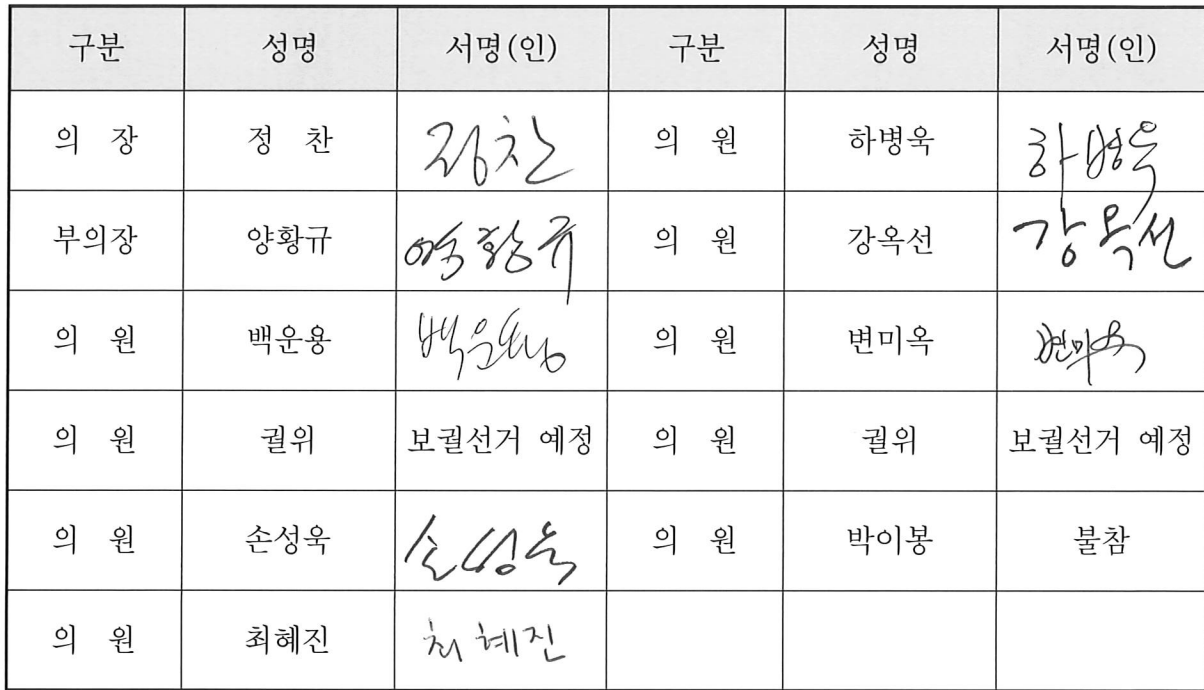 구분 성명 서명(인) 구분 성명 서명(인)
의 장 정 찬 정찬 의 원 하병욱 하병욱
부의장 양황규 양황규 의 원 강옥선 강옥선
의 원 백운용 백운용 의 원 변미옥 변미옥
의 원 궐위 보궐선거 예정 의 원 궐위 보궐선거 예정
의 원 손성욱 손성욱 의 원 박이봉 불참
의 원 최혜진 최혜진